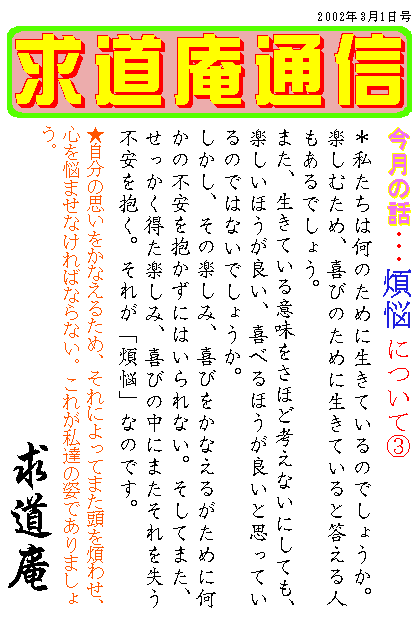 2002年3月1日号
求道庵通信
今月の話…煩悩について③
＊私たちは何のために生きているのでしょうか。
楽しむため、喜びのために生きていると答える人
もあるでしょう。
また、生きている意味をさほど考えないにしても、
楽しいほうが良い、喜べるほうが良いと思ってい
るのではないでしょうか。
しかし、その楽しみ、喜びをかなえるがために何
かの不安を抱かずにはいられない。そしてまた、
せっかく得た楽しみ、喜びの中にまたそれを失う
不安を抱く。それが「煩悩」なのです。
★自分の思いをかなえるため、それによってまた頭を煩わせ、
心を悩ませなければならない。これが私達の姿でありましょ
う。
求道庵